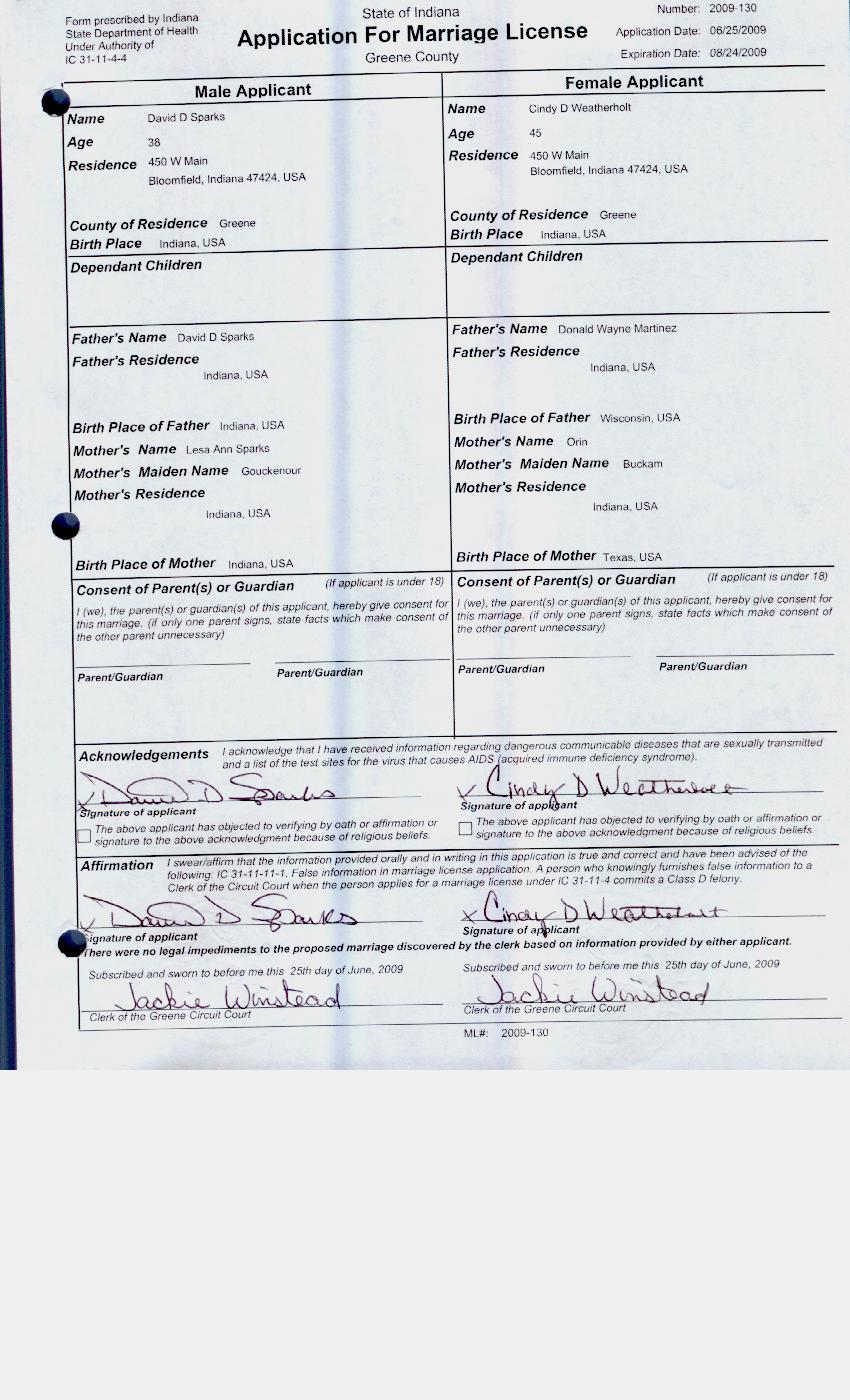 Form prescribed by Indiana
State Department of Health
Under Authority of
IC 31-11-4-4
State of Indiana
Application For Marriage License
Greene County
Number: 2009-130
Application Date: 06/25/2009
Expiration Date: 08/24/2009
Male Applicant
Name David D Sparks
Age 38
Residence 450 W Main
Bloomfield, Indiana 47424, USA
County of Residence Greene
Birth Place Indiana, USA
Dependant Children
Father's Name David D Sparks
Father's Residence
Indiana, USA
Birth Place of Father Indiana, USA
Mother's Name Lesa Ann Sparks
Mother's Maiden Name Gouckenour
Mother's Residence
Indiana, USA
Birth Place of Mother Indiana, USA
Consent of Parent(s) or Guardian (If applicant is under 18)
I (we), the parent(s) or guardian(s) of this applicant, hereby give consent for
this marriage. (if only one parent signs, state facts which make consent of
the other parent unnecessary)
Parent/Guardian Parent/Guardian
Female Applicant
Name Cindy D Weatherholt
Age 45
Residence 450 W Main
Bloomfield, Indiana 47424, USA
County of Residence Greene
Birth Place Indiana, USA
Dependant Children
Father's Name Donald Wayne Martinez
Father's Residence
Indiana, USA
Birth Place of Father Wisconsin, USA
Mother's Name Orin
Mother's Maiden Name Buckam
Mother's Residence
Indiana, USA
Birth Place of Mother Texas, USA
Consent of Parent(s) or Guardian (If applicant is under 18)
I (we), the parent(s) or guardian(s) of this applicant, hereby give consent for
this marriage. (if only one parent signs, state facts which make consent of
the other parent unnecessary)
Parent/Guardian Parent/Guardian
Acknowledgements I acknowledge that I have received information regarding dangerous communicable diseases that are sexually transmitted
and a list of the test sites for the virus that causes AIDS (acquired immune deficiency syndrome).
x David D Sparks
Signature of applicant
The above applicant has objected to verifying by oath or affirmation or
signature to the above acknowledgment because of religious beliefs.
x Cindy D
Signature of applicant
The above applicant has objected to verifying by oath or affirmation or
signature to the above acknowledgment because of religious beliefs.
Affirmation I swear/affirm that the information provided orally and in writing in this application is true and correct and have been advised of the
following: IC 31-11-11-1. False information in marriage license application. A person who knowingly furnishes false information to a
Clerk of the Circuit Court when the person applies for a marriage license under IC 31-11-4 commits a Class D felony.
x David D Sparks
Signature of applicant
x Cindy D
Signature of applicant
There were no legal impediments to the proposed marriage discovered by the clerk based on information provided by either applicant.
Subscribed and sworn to before me this 25th day of June, 2009
Jackie Winstead
Clerk of the Greene Circuit Court
Subscribed and sworn to before me this 25th day of June, 2009
Jackie Winstead
Clerk of the Greene Circuit Court
ML#: 2009-130